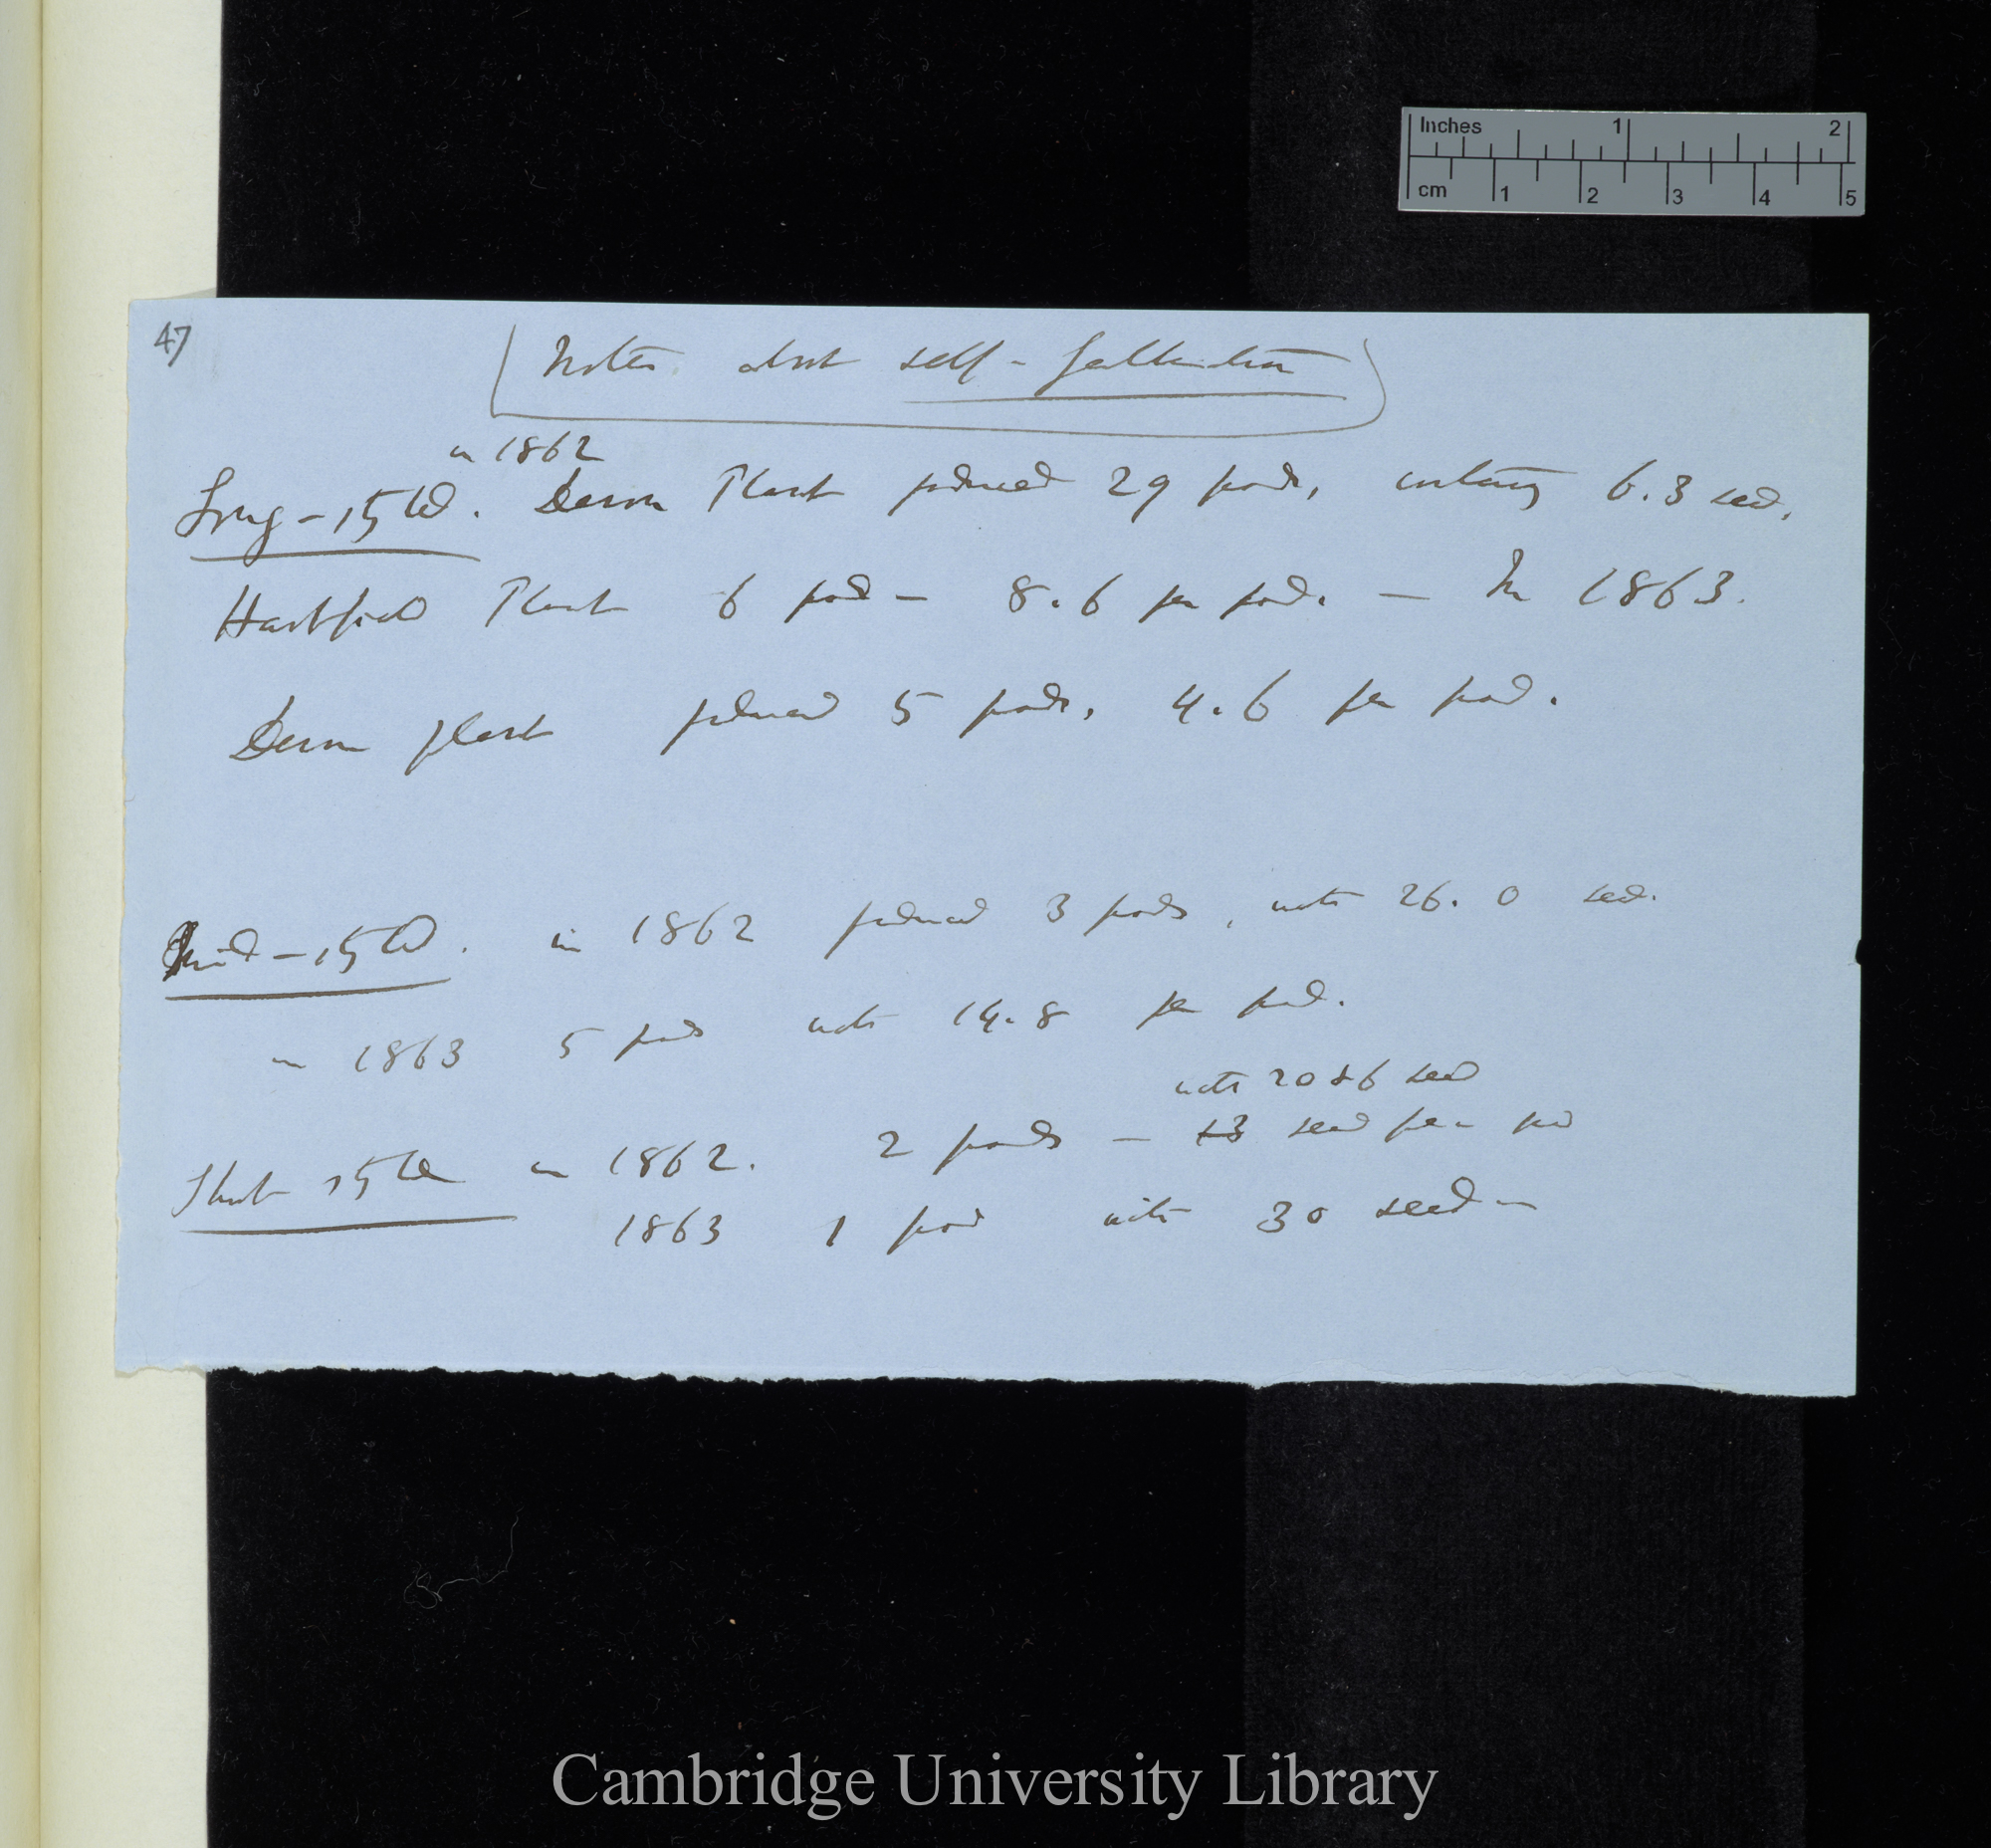 Inches 1 2
cm 1 2 3 4 5
47
Notes about self-fertilisation
in 1862
Long-styled. Devon Plant produced 29 pods, containing 6.3 seed.
Hartfield Plant 6 pod — 8.6 per pod. — In 1863.
Devon plant produced 5 pods, 4.6 per pod.
Mid-styled. in 1862 produced 3 pods, with 26.0 seed.
in 1863 5 pods with 14.8 per pod.
with 20 & 6 seed
Short styled in 1862. 2 pods — 13 seed per pod
1863 1 pod with 30 seed —
Cambridge University Library